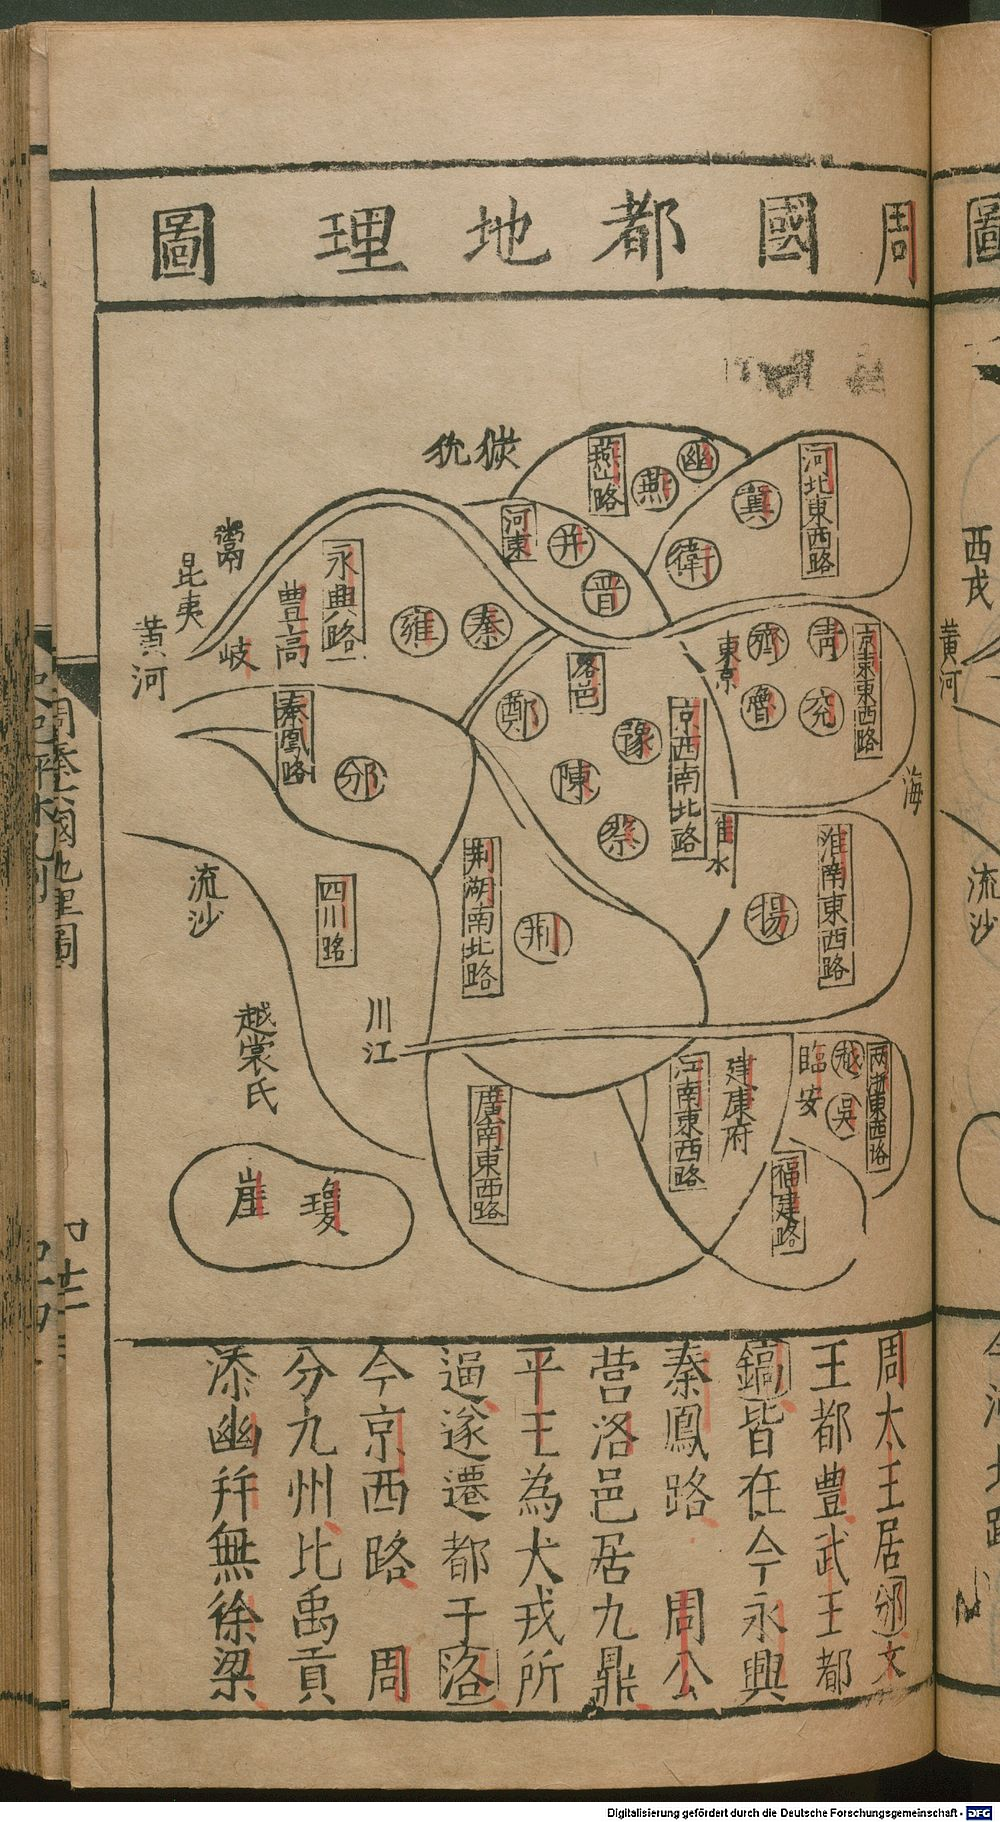 周國都地理圖
獫狁
燕山路
燕
幽
河北東西路
冀
衛
河東
并
晋
鬻
昆夷
黄河
岐
豊高
永興路
雍
秦
東京
齊
青
魯
兖
京東東西路
海
洛邑
鄭
豫
陳
蔡
京西南北路
秦鳳路
邠
淮水
淮南東西路
揚
流沙
四川路
荆湖南北路
荆
川江
越裳氏
廣南東西路
江南東西路
建康府
臨安
越
吳
两浙東西路
福建路
崖
瓊
周太王居邠文
王都豊武王都
鎬皆在今永興
秦鳳路 周公
营洛邑居九鼎
平王為犬戎所
逼遂遷都于洛
今京西路 周
分九州比禹貢
添幽并無徐梁
圖
西戎
黄河
流沙
Digitalisierung gefördert durch die Deutsche Forschungsgemeinschaft - DFG